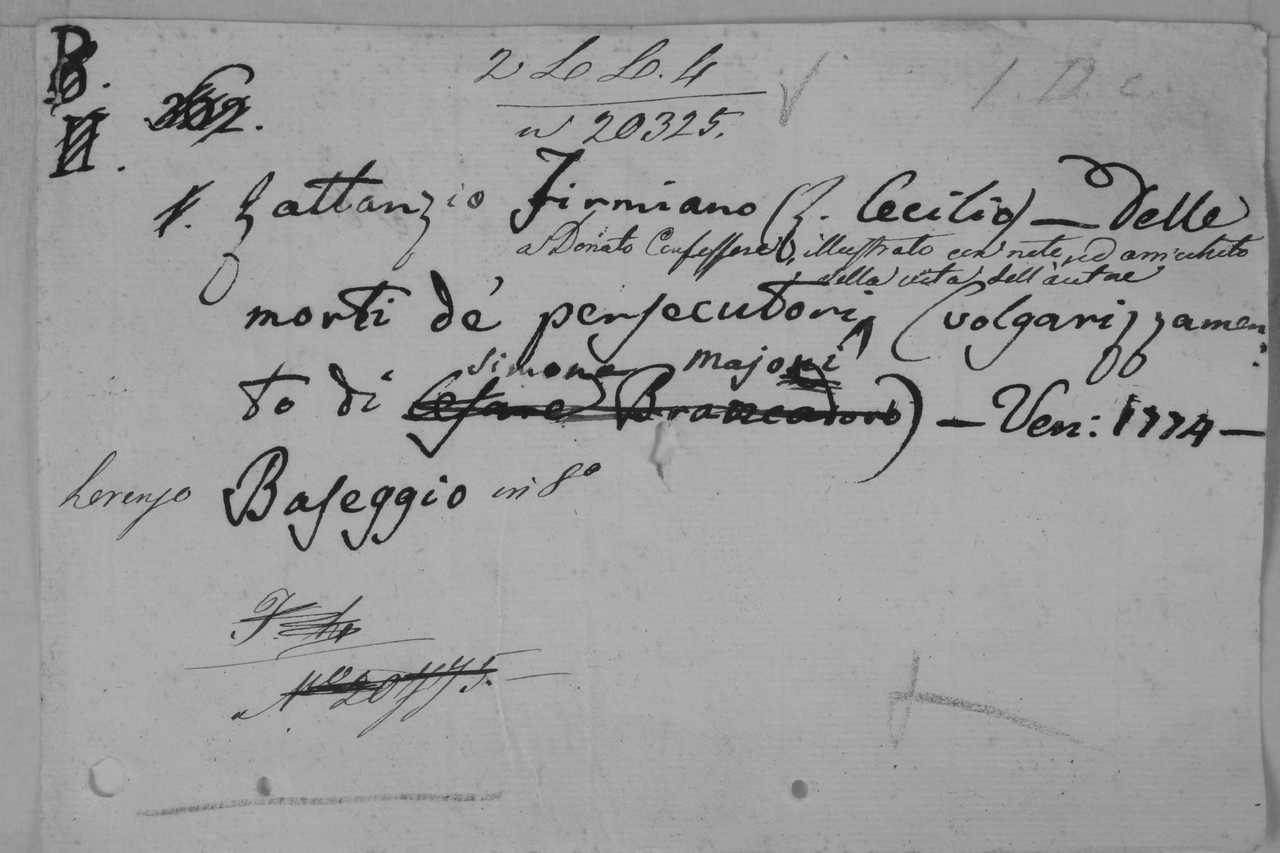 B.
II.
262.
2 LL. 4
n 20325.
1. D. c.
1. Lattanzio Firmiano (L. Cecilio) — Delle
a Donato Confessore, illustrato con note, ed arricchito
della vita dell'autore
morti de' persecutori, (volgarizzamen-
Simone Majoni
to di Cesare Brancadoro) — Ven: 1774 —
Lorenzo Baseggio in 8º